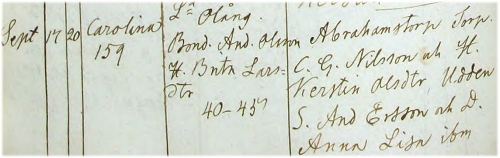 La Olång.
Sept 17 20 Carolina
159
Bond. And. Olsson
H. Britn Lars-
dtr
40-45
Abrahamstorp Torp.
C. G. Nilsson och H.
Kerstin Olsdtr, Udden
S. And Ersson och D.
Anna Lisa ibm